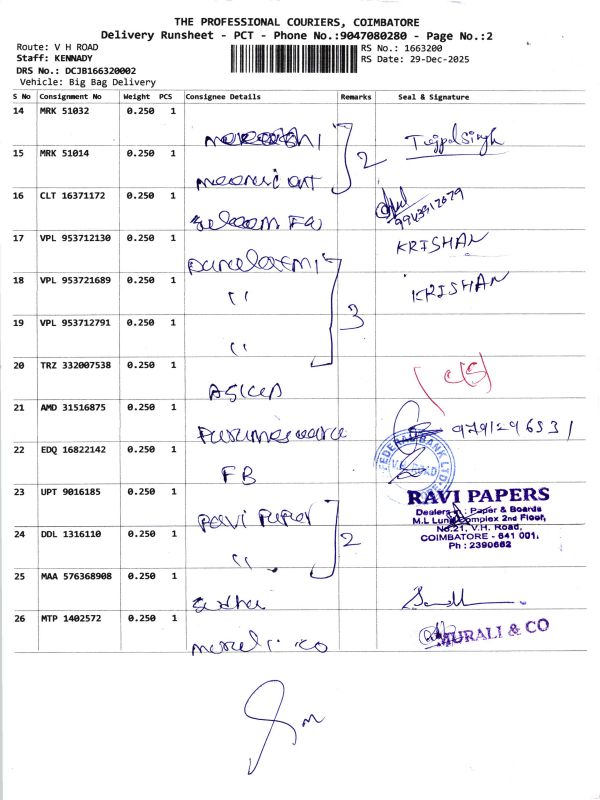 THE PROFESSIONAL COURIERS, COIMBATORE
Delivery Runsheet - PCT - Phone No.:9047080280 - Page No.:2
Route: V H ROAD
Staff: KENNADY
DRS No.: DCJB166320002
Vehicle: Big Bag Delivery
RS No.: 1663200
RS Date: 29-Dec-2025
S No Consignment No Weight PCS Consignee Details Remarks Seal & Signature
14 MRK 51032 0.250 1
2 Tejpal Singh
15 MRK 51014 0.250 1
16 CLT 16371172 0.250 1
17 VPL 953712130 0.250 1 KRISHAN
18 VPL 953721689 0.250 1 " KRISHAN
3
19 VPL 953712791 0.250 1 "
20 TRZ 332007538 0.250 1
21 AMD 31516875 0.250 1
9791296531
22 EDQ 16822142 0.250 1 FB
FEDERAL BANK LTD
V.H. ROAD
23 UPT 9016185 0.250 1 Ravi Paper
2
RAVI PAPERS
Dealers in : Paper & Boards
M.L Luna Complex 2nd Floor,
No.21, V.H. Road,
COIMBATORE - 641 001.
Ph : 2390662
24 DDL 1316110 0.250 1 "
25 MAA 576368908 0.250 1
26 MTP 1402572 0.250 1 Murali . co
MURALI & CO